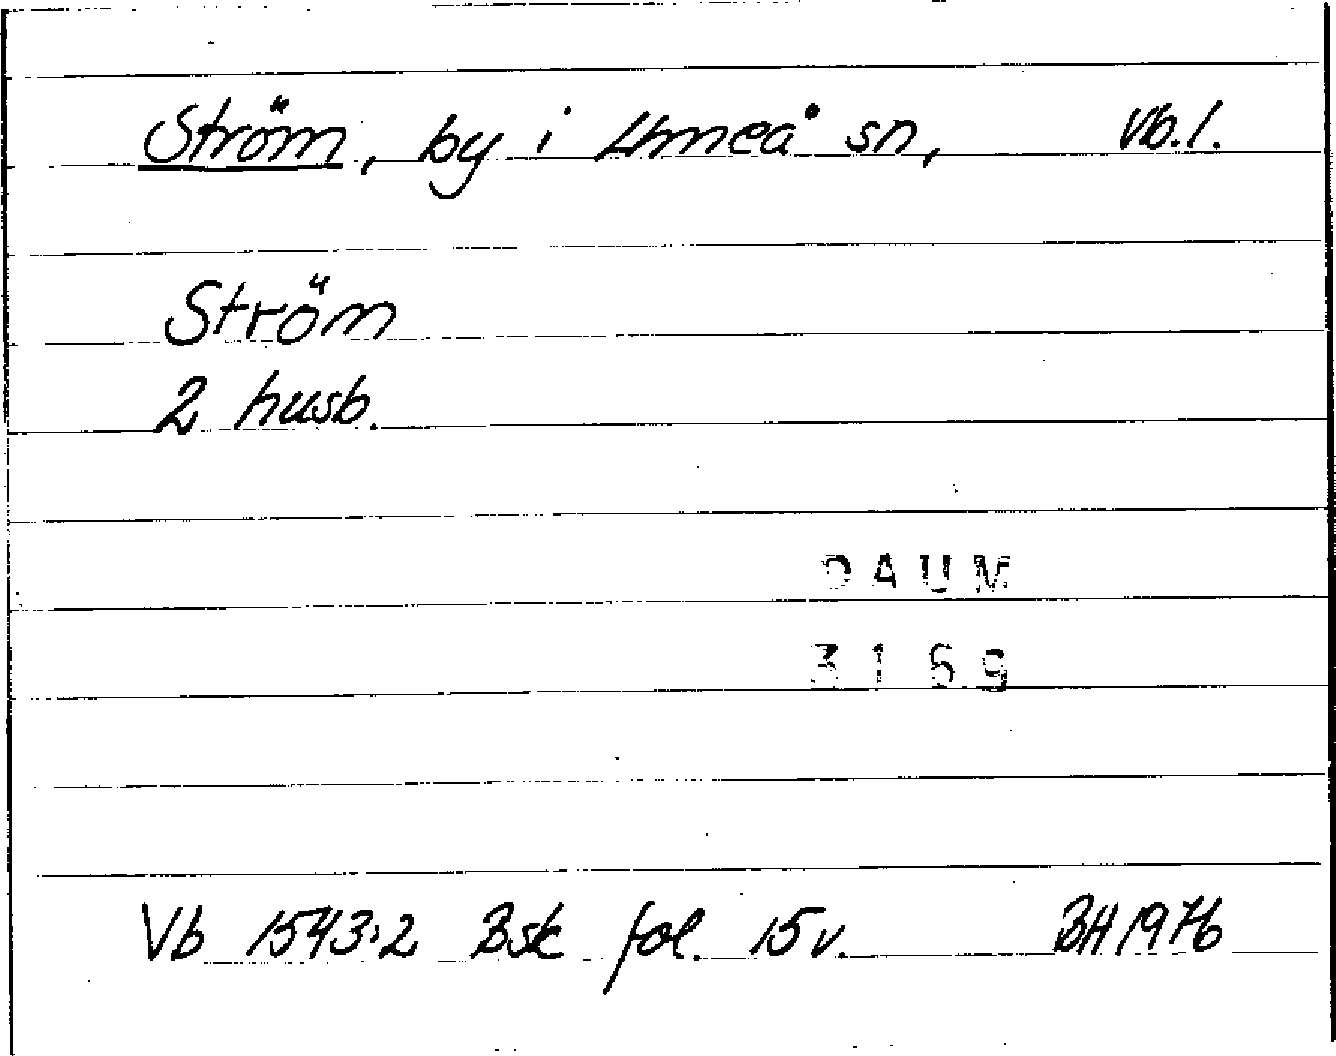 Ström, by i Umeå sn, Vb.l.
Ström
2 husb.
DAUM
3169
Vb 1543:2 Bsk fol. 15v. BH 1976